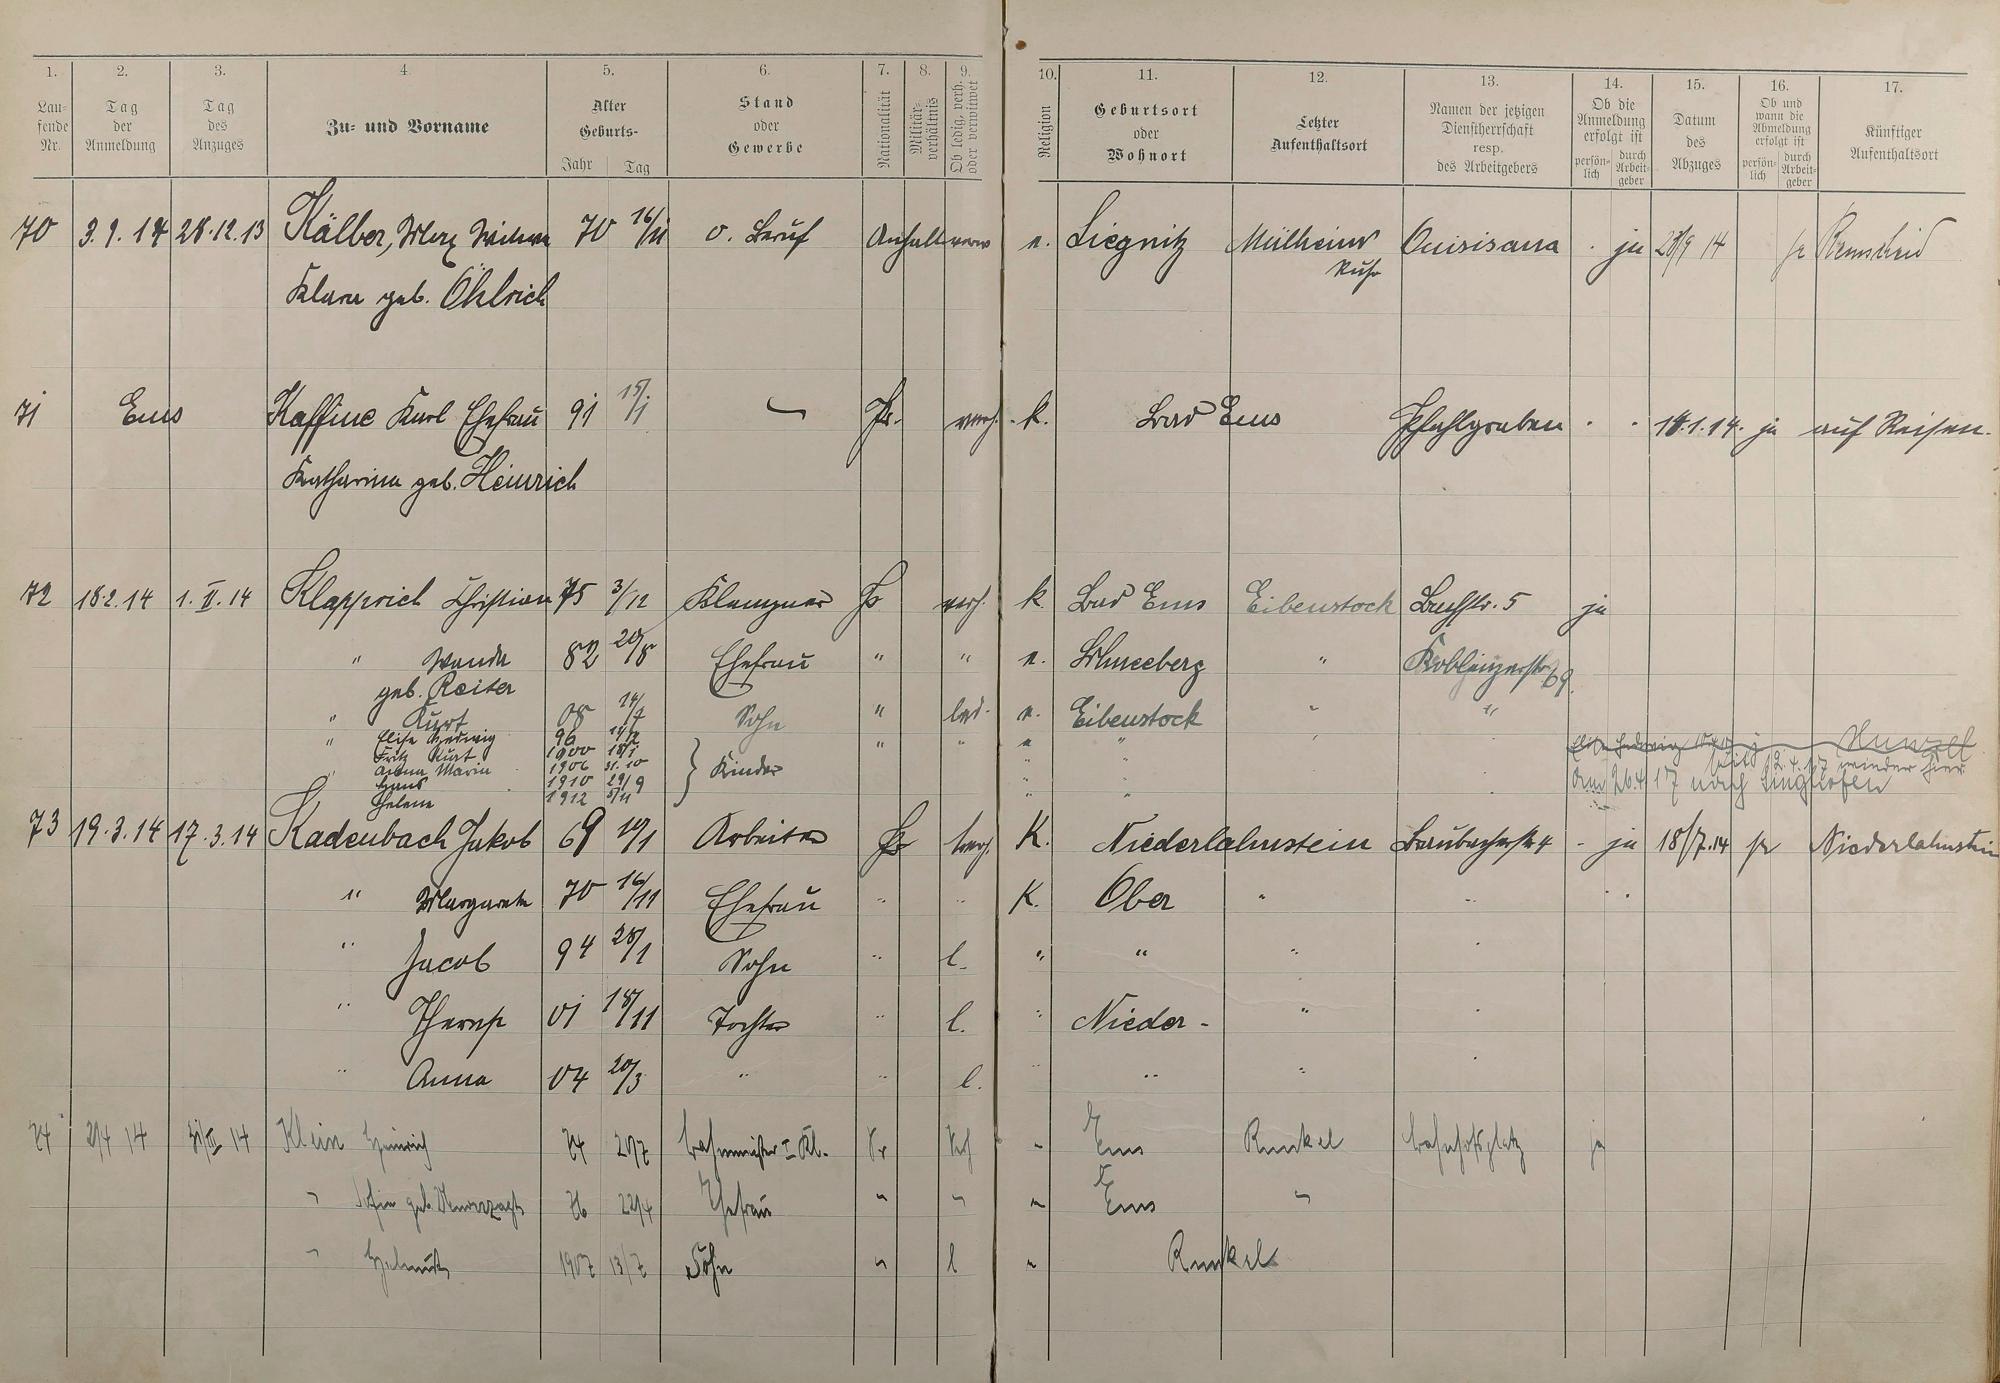 1. 2. 3. 4. 5. 6. 7. 8. 9. 10. 11. 12. 13. 14. 15. 16. 17.
Lau- fende Nr.
Tag der Anmeldung
Tag des Anzuges
Zu- und Vorname
Alter Geburts- Jahr Tag
Stand oder Gewerbe
Nationalität
Militär- verhältnis
Ob ledig, verh. oder verwitwet
Religion
Geburtsort oder Wohnort
Letzter Aufenthaltsort
Namen der jetzigen Dienstherrschaft resp. des Arbeitgebers
Ob die Anmeldung erfolgt ist persön- lich durch Arbeit- geber
Datum des Abzuges
Ob und wann die Abmeldung erfolgt ist persön- lich durch Arbeit- geber
Künftiger Aufenthaltsort
70 3.9.14 28.12.13 Kälber, Witwe 70 16/11 o. Beruf Anhalt verw e. Liegnitz Mülheim Quisisana . ja 28/9 14 Remscheid
Ruhr
Klara geb. Öhlrich
71 Ems Kaffine Karl Ehefrau 91 15/1 Pr. verh. k. Bad Ems Pfahlgraben . . 18.1.14. ja auf Reisen.
Katharina geb. Heinrich
72 18.2.14 1.II.14 Klapprich Christian 75 3/12 Klempner Pr verh. k. Bad Ems Eibenstock Bachstr. 5 ja
" Wanda 82 20/8 Ehefrau " " e. Schneeberg " Koblenzerstr 69.
geb. Reiter
" Kurt 08 14/7 Sohn " led. e. Eibenstock " "
" Elise Hedwig 96 "
Fritz Kurt 1900 18/1
Anna Maria 1906 31.10 } Kinder
Hans 1910 29/9
Helene 1912 5/11
am 26.4 17 nach Singhofen
73 19.3.14 17.3.14 Kadenbach Jakob 69 10/1 Arbeiter Pr verh. K. Niederlahnstein Braubacherstr 4 - ja 18/7.14 Niederlahnstein
" Margarete 70 16/11 Ehefrau " " K. Ober " " "
" Jacob 94 28/1 Sohn " l. " " "
" Theresе 01 18/11 Tochter " l. " Nieder- "
" Anna 04 20/3 " " l. " " "
74 2/4 14 31/III 14 Klein Heinrich 74 20/7 Bahnmeister I Kl. Pr Verh Ems Runkel Bahnhofsplatz ja
" geb. 76 22/4 Ehefrau " " " Ems "
" Helmuth 1907 13/7 Sohn " l " Runkel